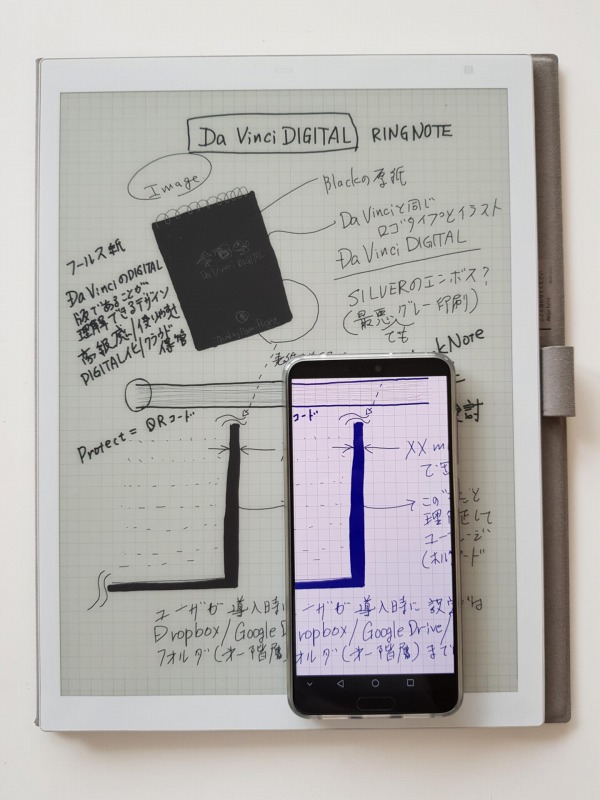 Da Vinci DIGITAL RINGNOTE
Image
Blackの厚紙
Da Vinciと同じ
ロゴタイプとイラスト
Da Vinci DIGITAL
SILVERのエンボス?
(最悪グレー印刷)
でも
フールス紙
Da VinciのDIGITAL
版であることが
理解できるデザイン
高級感/使りやすさ
DIGITAL化/クラウド
保管
Da Vinci DIGITAL
Note
討
Protect = QRコード
コード
XX m
で
この
と
理
して
ユー
ユーザが導入時に
ーザが 導入時に 設
は
Dropbox/Google D
ropbox/Google Drive/
フォルダ(オー階層)
ォルダ(オー階層)まで